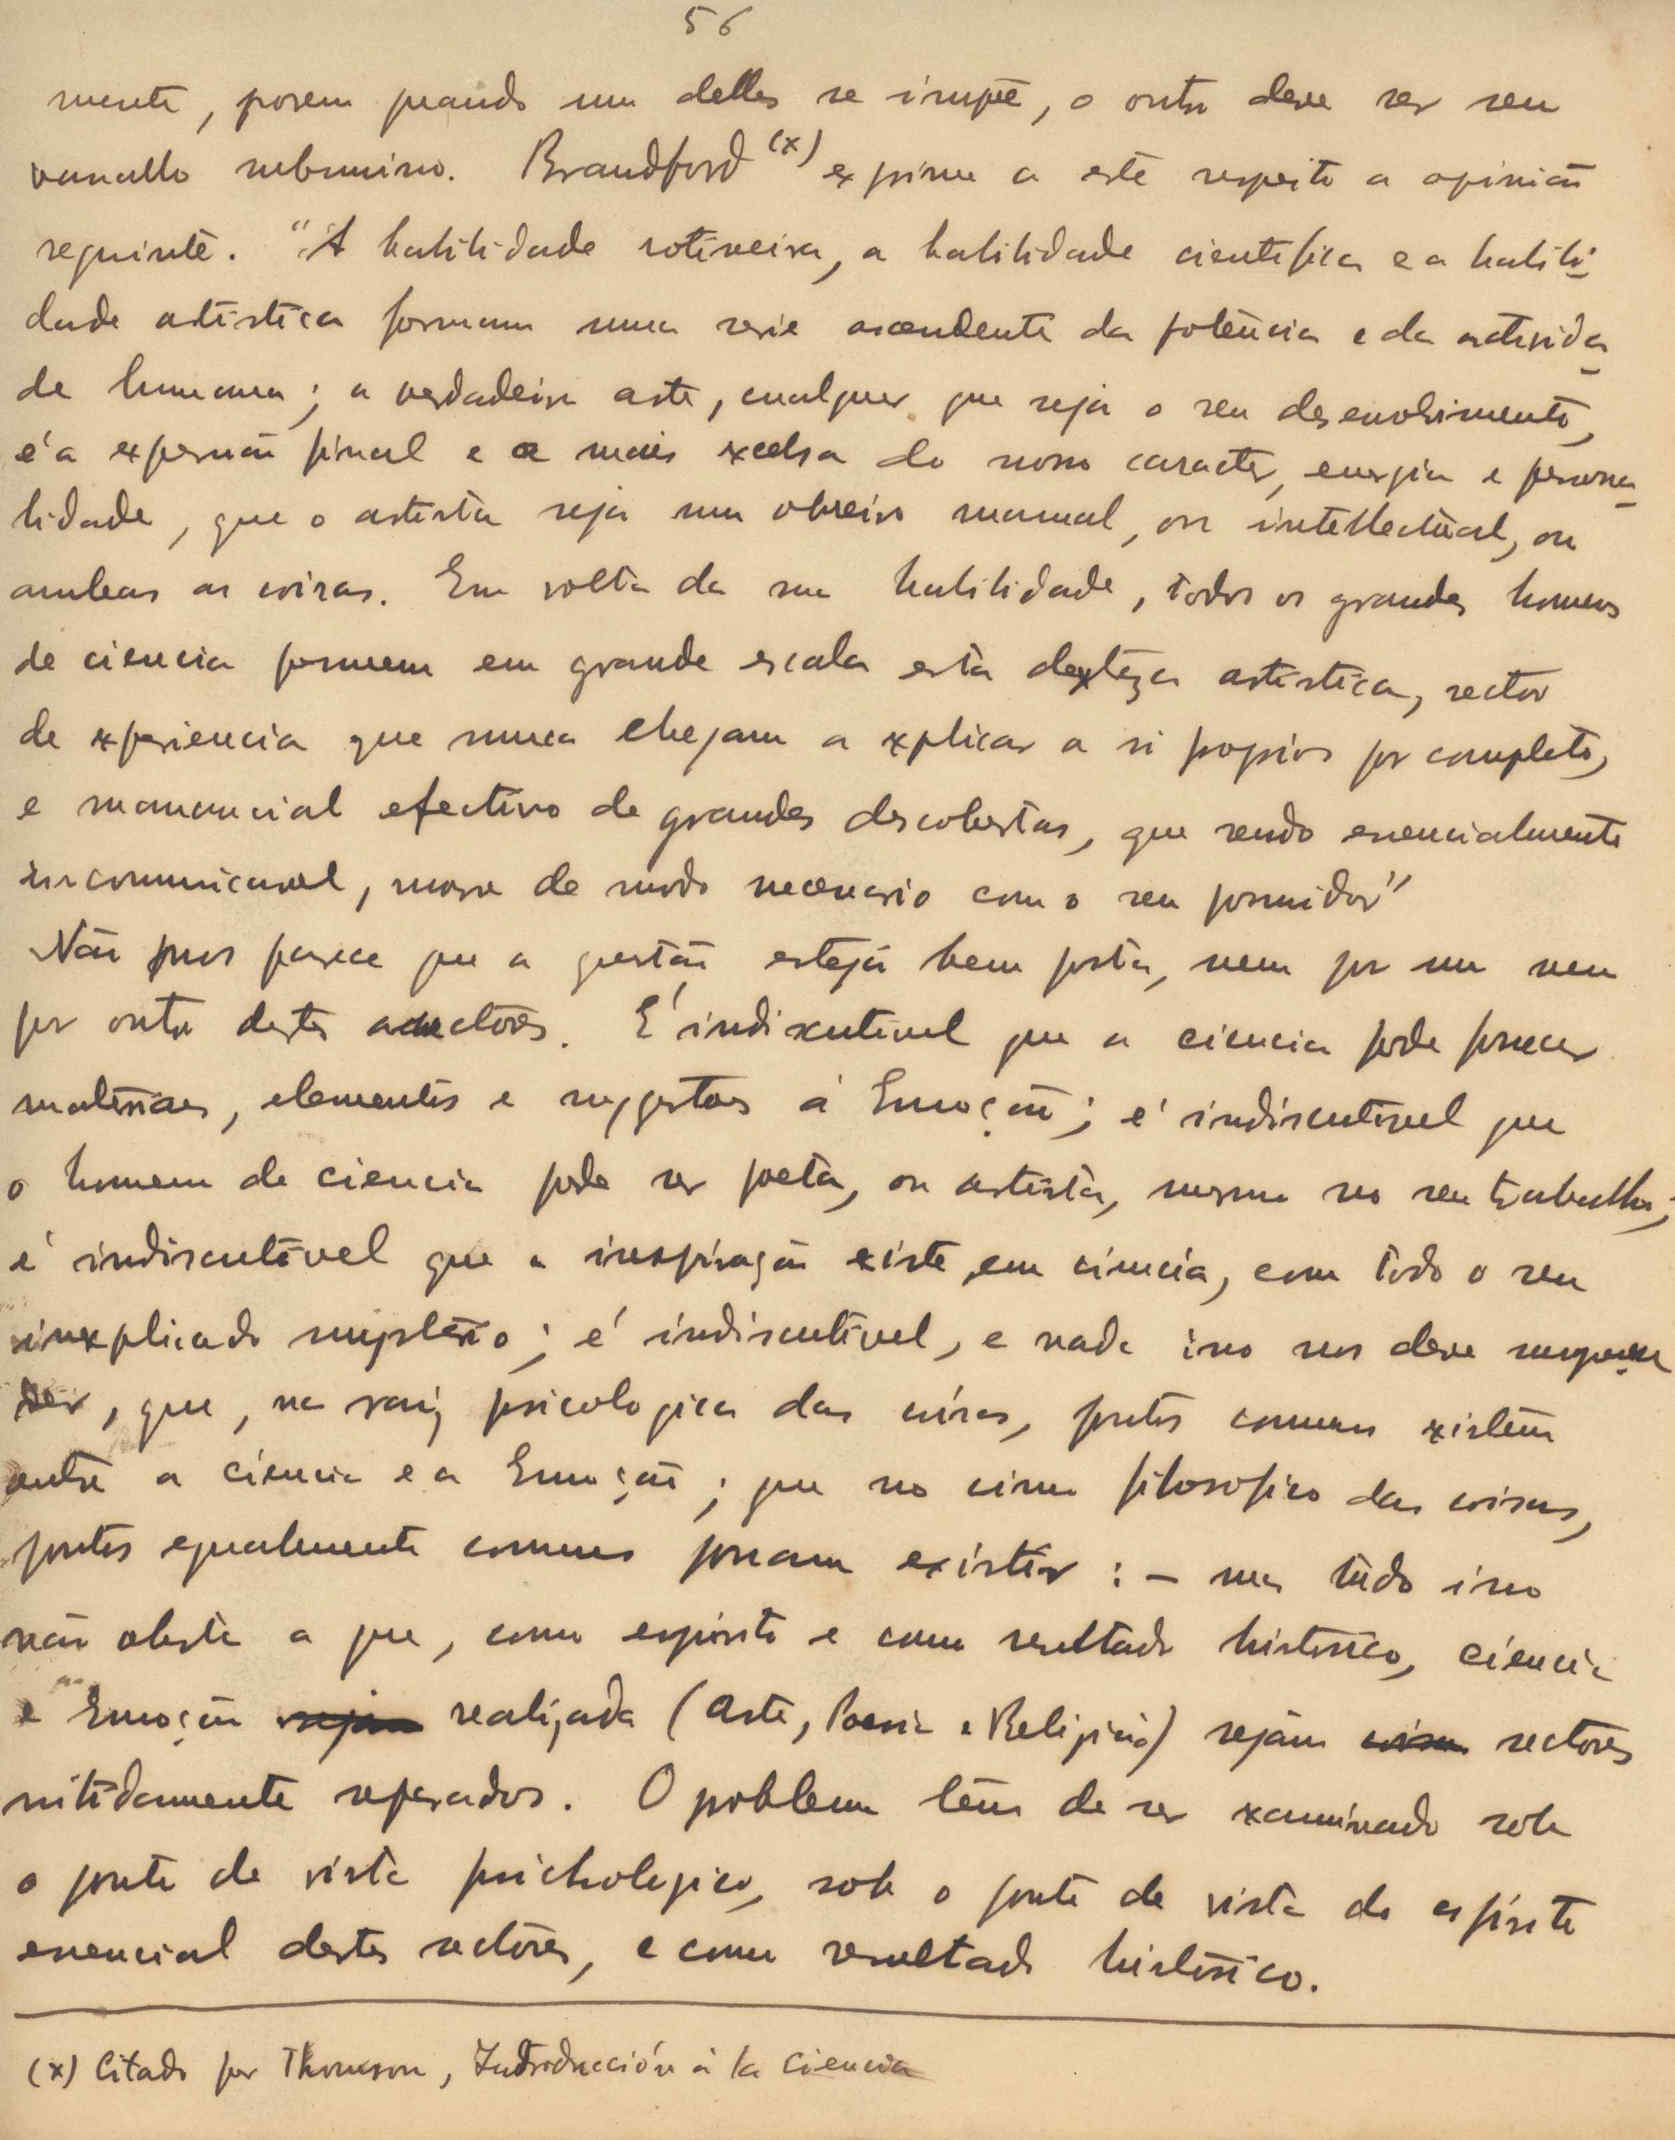 56
mente, porem quando um delles se impõe, o outro deve ser seu
vassallo submisso. Brandford (x) exprime a este respeito a opinião
seguinte. "A habilidade rotineira, a habilidade cientifica e a habili-
dade artistica formam uma serie ascendente da potencia e da activida-
de humana; a verdadeira arte, cualquer que seja o seu desenvolvimento,
é a expressão final e a mais excelsa do nosso caracter, energia e persona-
lidade, que o artista seja um obreiro manual, ou intellectual, ou
ambas as coisas. Em volta da sua habilidade, todos os grandes homens
de ciencia possuem em grande escala esta dexteza artistica, sector
de experiencia que nunca chegam a explicar a si proprios por completo,
e manancial efectivo de grandes descobertas, que sendo essencialmente
incommunicavel, morre de modo necessario com o seu possuidor"
Não nos parece que a questão esteja bem posta, nem por um nem
por outro destes auctores. É indiscutivel que a ciencia pode fornecer
materiaes, elementos e suggestões á Emoção; é indiscutivel que
o homem de ciencia pode ser poeta, ou artista, mesmo no seu trabalho;
é indiscutivel que a inspiração existe, em ciencia, com todo o seu
inexplicado mysterio; é indiscutivel, e nada isso nos deve surpreen
der, que, na raiz psicologica das coisas, pontos comuns existem
entre a ciencia e a Emoção; que no cimo filosofico das coisas,
pontos egualmente comuns possam existir: - mas tudo isso
não obsta a que, como espirito e como resultado historico, ciencia
e Emoção sejam realizada (Arte, Poesia e Religião) sejam coisas sectores
nitidamente separados. O problema tem de ser examinado sob
o ponto de vista psichologico, sob o ponto de vista do espirito
essencial destes sectores, e como resultado historico.
(x) Citado por Thomson, Introducción á la Ciencia